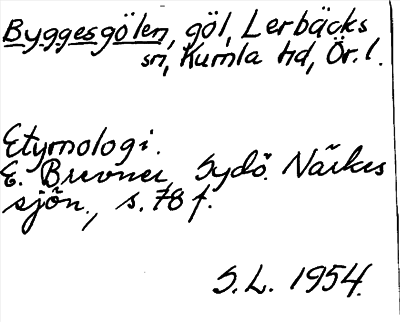 Byggesgölen, göl, Lerbäcks
sn, Kumla hd, Ör. l.
Etymologi.
E. Brevner, Sydö. Närkes
sjön., s. 78 f.
S.L. 1954.